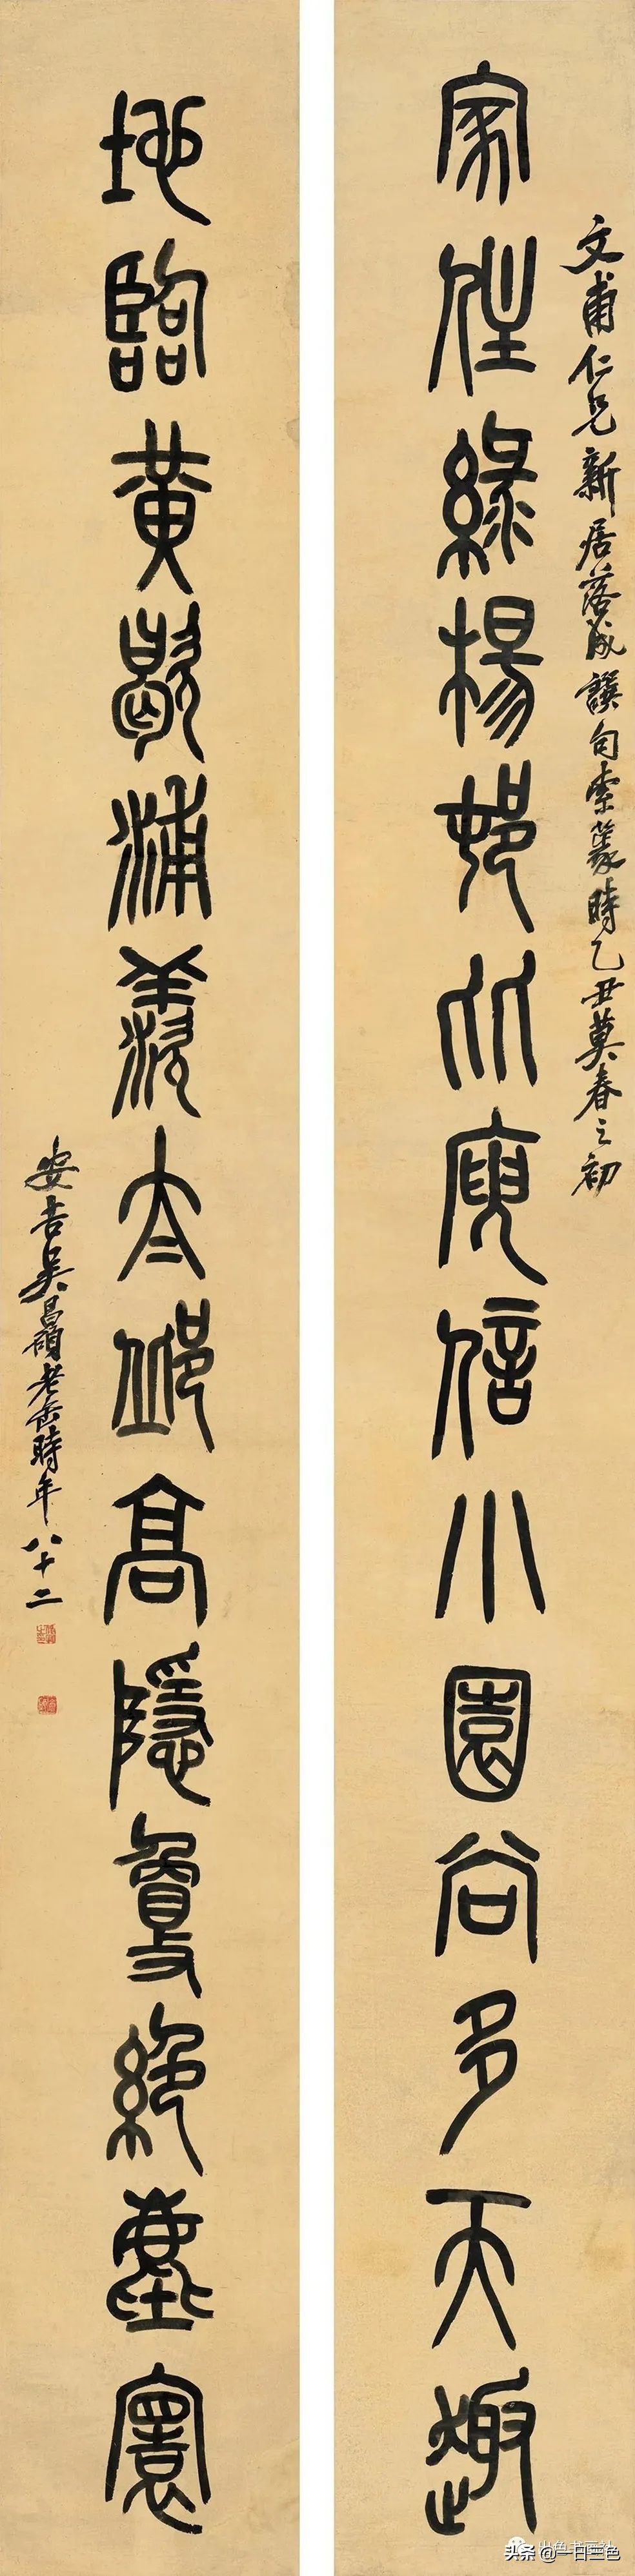 家住綠楊邨比庾信小園尚多天趣
文甫仁兄新居落成譔句索篆時乙丑莫春之初
地臨黃歇浦羨太邱高隱夐絕塵寰
安吉吳昌碩老缶時年八十二
头条 @一日三色